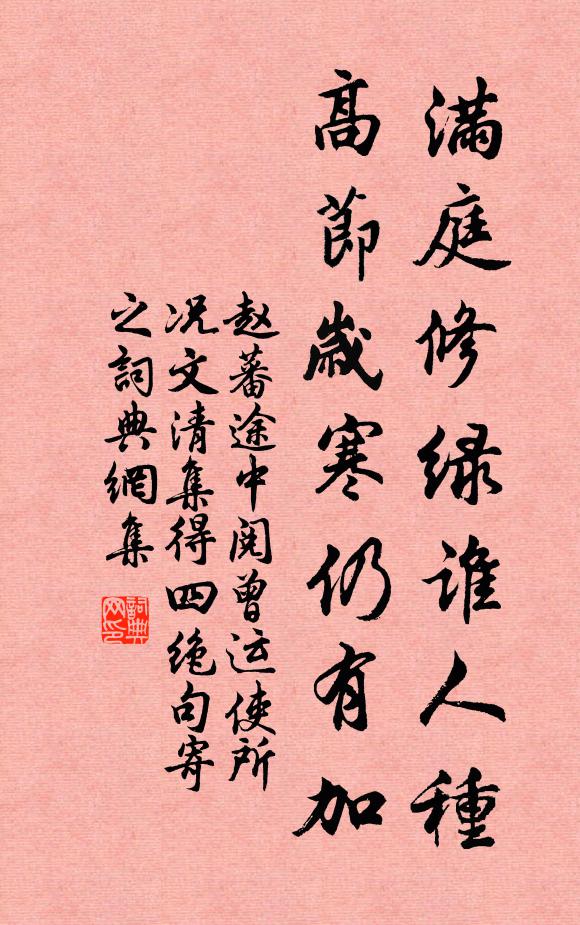 滿庭修绿谁人種
高節歲寒仍有加
赵蕃途中閱曾运使所
况文清集得四绝句寄
之詞典網集
詞典网印